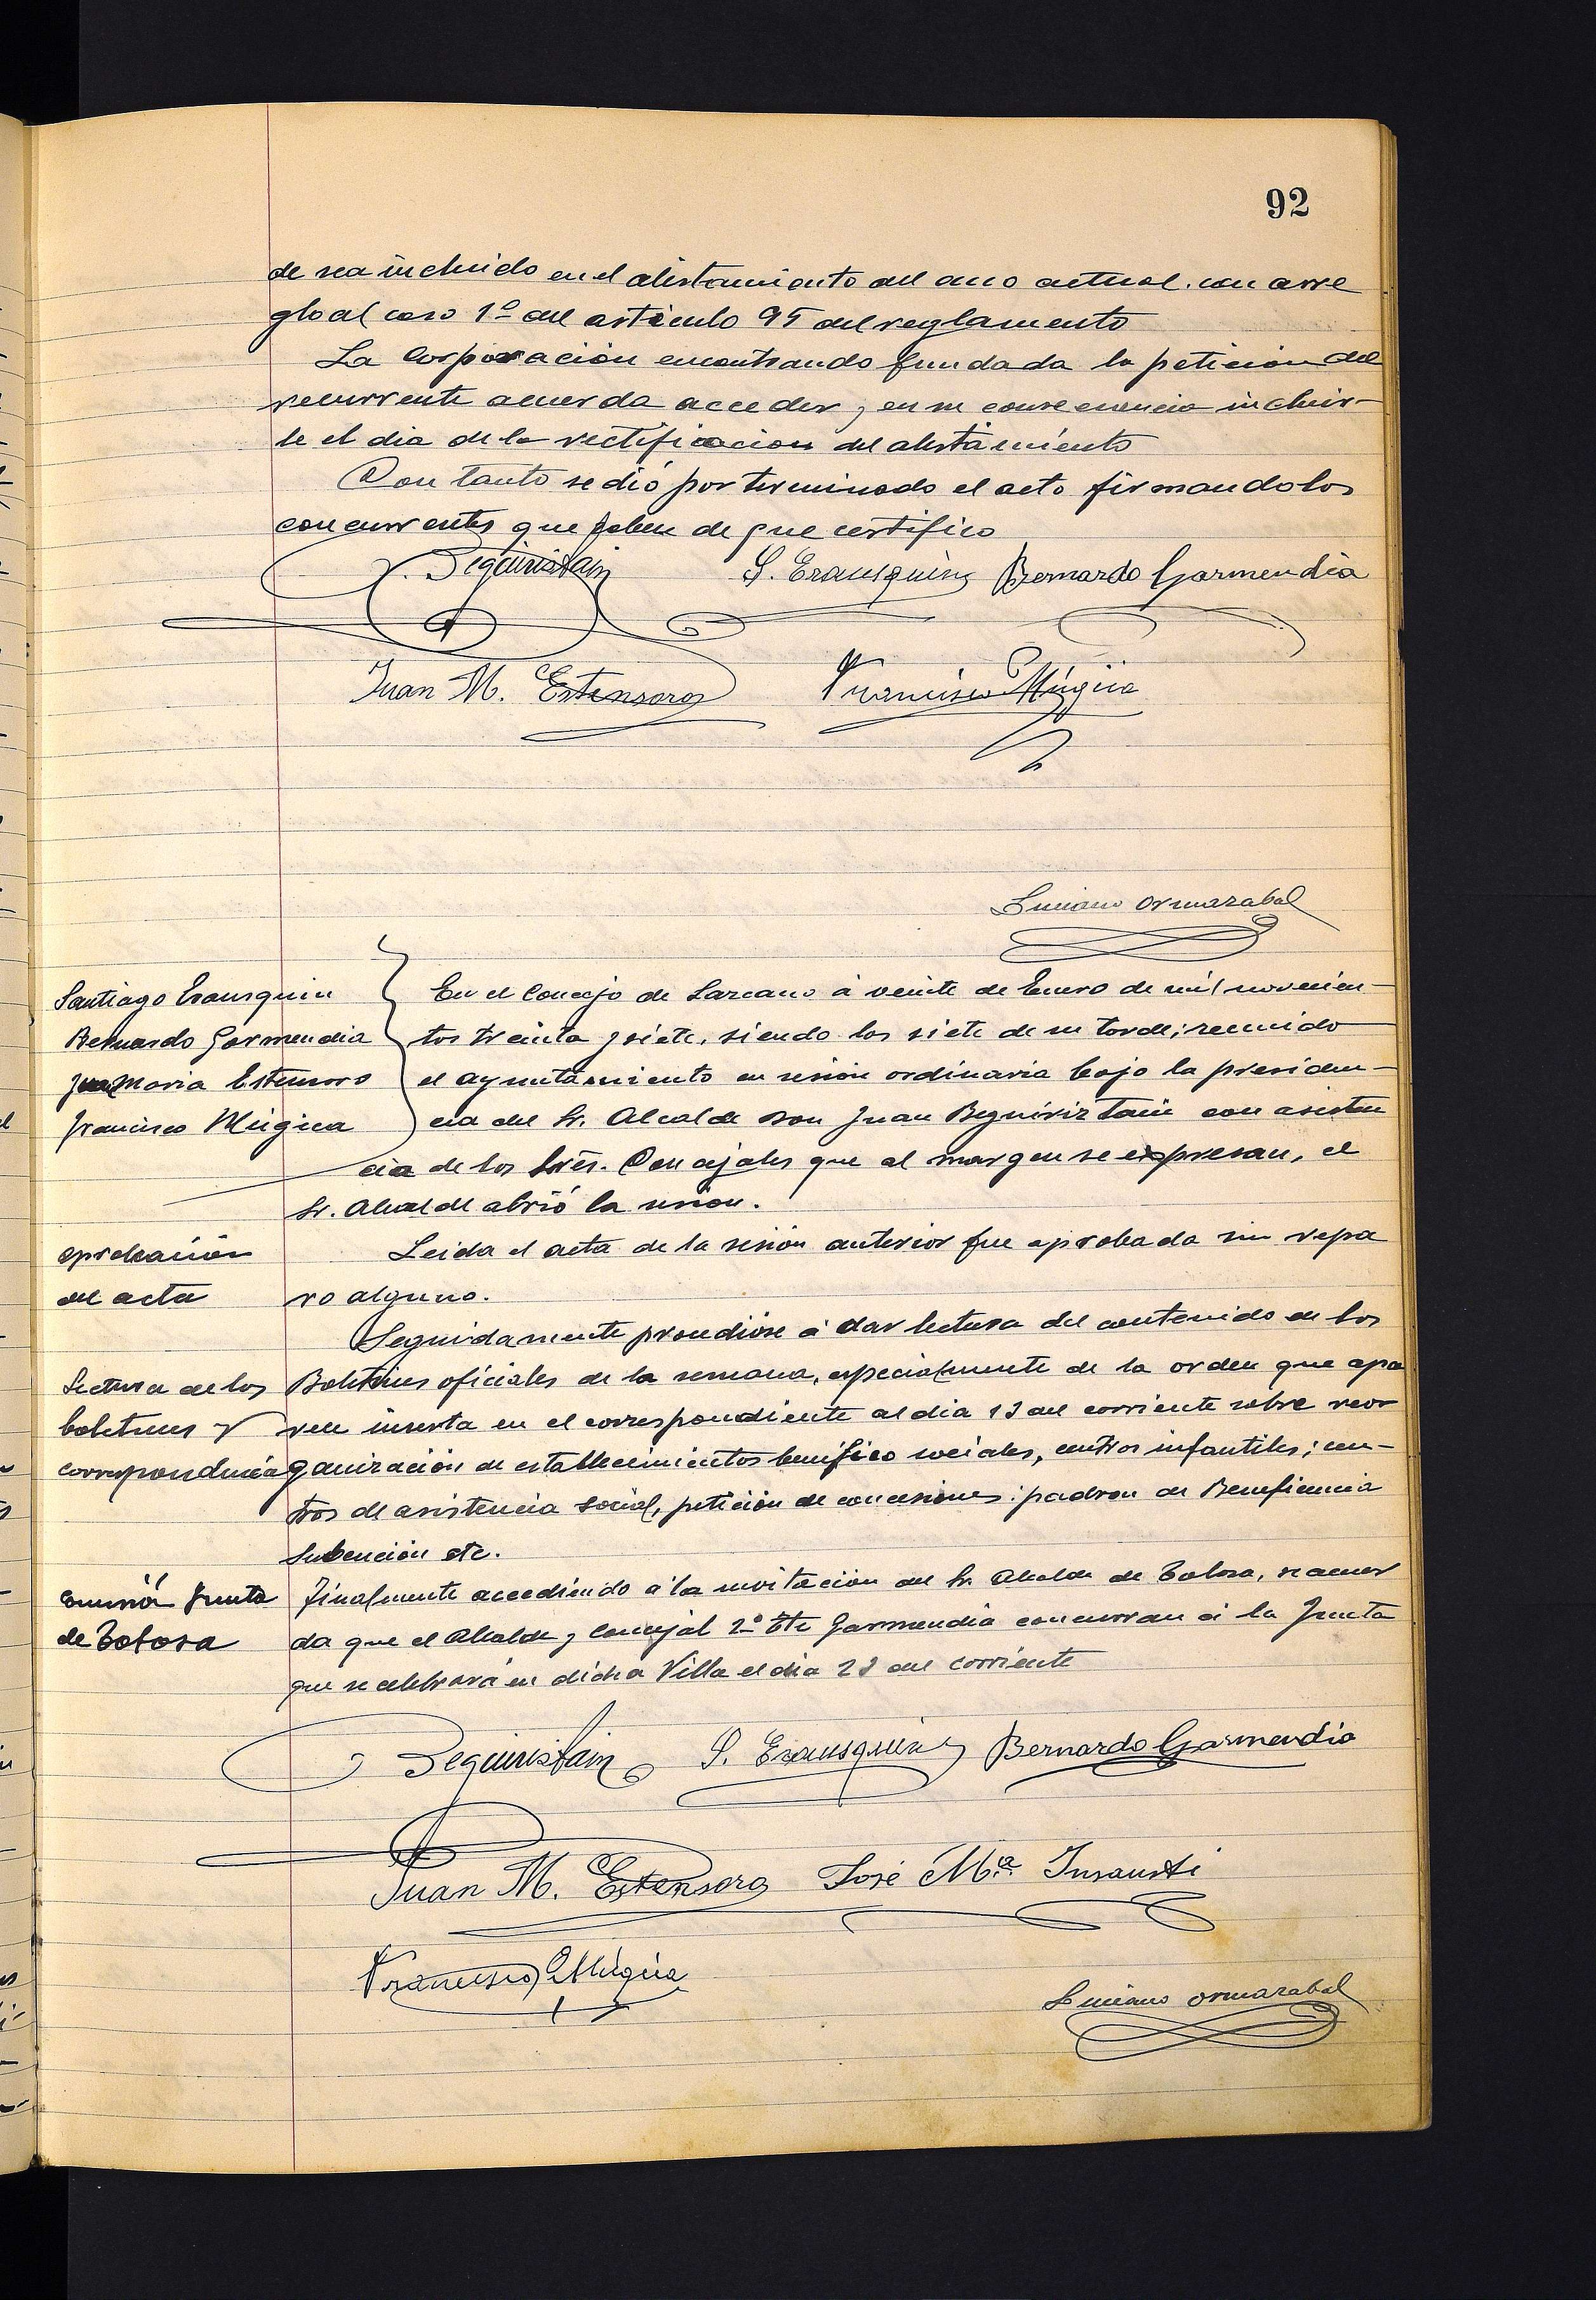 92
de sea incluido en el alistamiento del ano actual. con arre
glo al caso 1º del articulo 95 del reglamento
La Corporación encontrando fundada la petición del
recurrente acuerda acceder y en su consecuencia incluir-
le el dia de la rectificacion del alistamiento
Con tanto se dió por terminado el acto firmando los
concurrentes que saben de que certifico
J. Beguiristain S. Erausquin Bernardo Garmendia
Juan M. Estensoro Francisco Múgica
Luciano Ormazabal
Santiago Erausquin
Bernardo Garmendia
Juan Maria Estensoro
Francisco Múgica
En el Concejo de Lazcano á veinte de Enero de mil novecien-
tos treinta y siete, siendo las siete de su tarde; reunido
el ayuntamiento en sesión ordinaria bajo la presiden-
cia del Sr. Alcalde Don Juan Beguiriztain con asisten
cia de los Sres. Concejales que al margen se expresan, el
Sr. Alcalde abrió la sesion.
aprobación
del acta
Leida el acta de la sesión anterior fue aprobada sin repa
ro alguno.
Lectura de los
boletines y
correspondencia
Seguidamente procedióse á dar lectura del contenido de los
Boletines oficiales de la semana, especialmente de la orden que apa
rece inserta en el correspondiente al dia 13 del corriente sobre reor
ganización de establecimientos benéfico sociales, centros infantiles; cen-
tros de asistencia social, petición de concesiones: padron de Beneficencia
Subención etc.
comisión Junta
de Tolosa
Finalmente accediendo á la invitación del Sr. Alcalde de Tolosa, se acuer
da que el Alcalde y Concejal 2º Tte Garmendia concurran á la Junta
que se celebrará en dicha Villa el dia 23 del corriente
J. Beguiristain S. Erausquin Bernardo Garmendia
Juan M. Estensoro José Mª Insausti
Francisco Múgica
Luciano Ormazabal